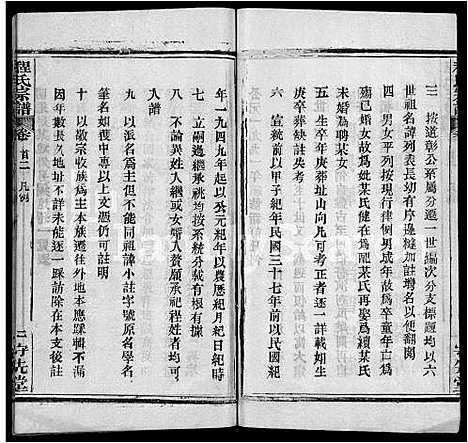 三 按道彰公系屬分遷一世編次分支標題均以六
世祖名諱列表長幼有序邊縫加註增名以便翻閱
四 男女平列按現行律例男成年為故卒童年亡為
殤已婚女故為妣某氏健在為配某氏再娶為續某氏
未婚為聘某女
五 生卒年庚葬址山向凡可考正者逐一詳載如生
庚卒葬失攷者概不註明
六 紀年以甲子紀年民國三十七年前以民國紀
年一九四九年起以公元紀年以農歷紀月紀日紀時
七 立嗣過繼承祧均按系統分載有根有據
八 不論異姓人繼或女婿入贅願承祀程姓者均可
入譜
九 以派名為主但不能同祖諱小註字號原名學名
筆名如兩專以上文憑仍可註明
十 以敬宗收族為主本族遷往外地本應踩輯不漏
因年數長久地址不詳未能逐一踩訪除在本支後註
程氏宗譜
卷首二 凡例
二 守先堂